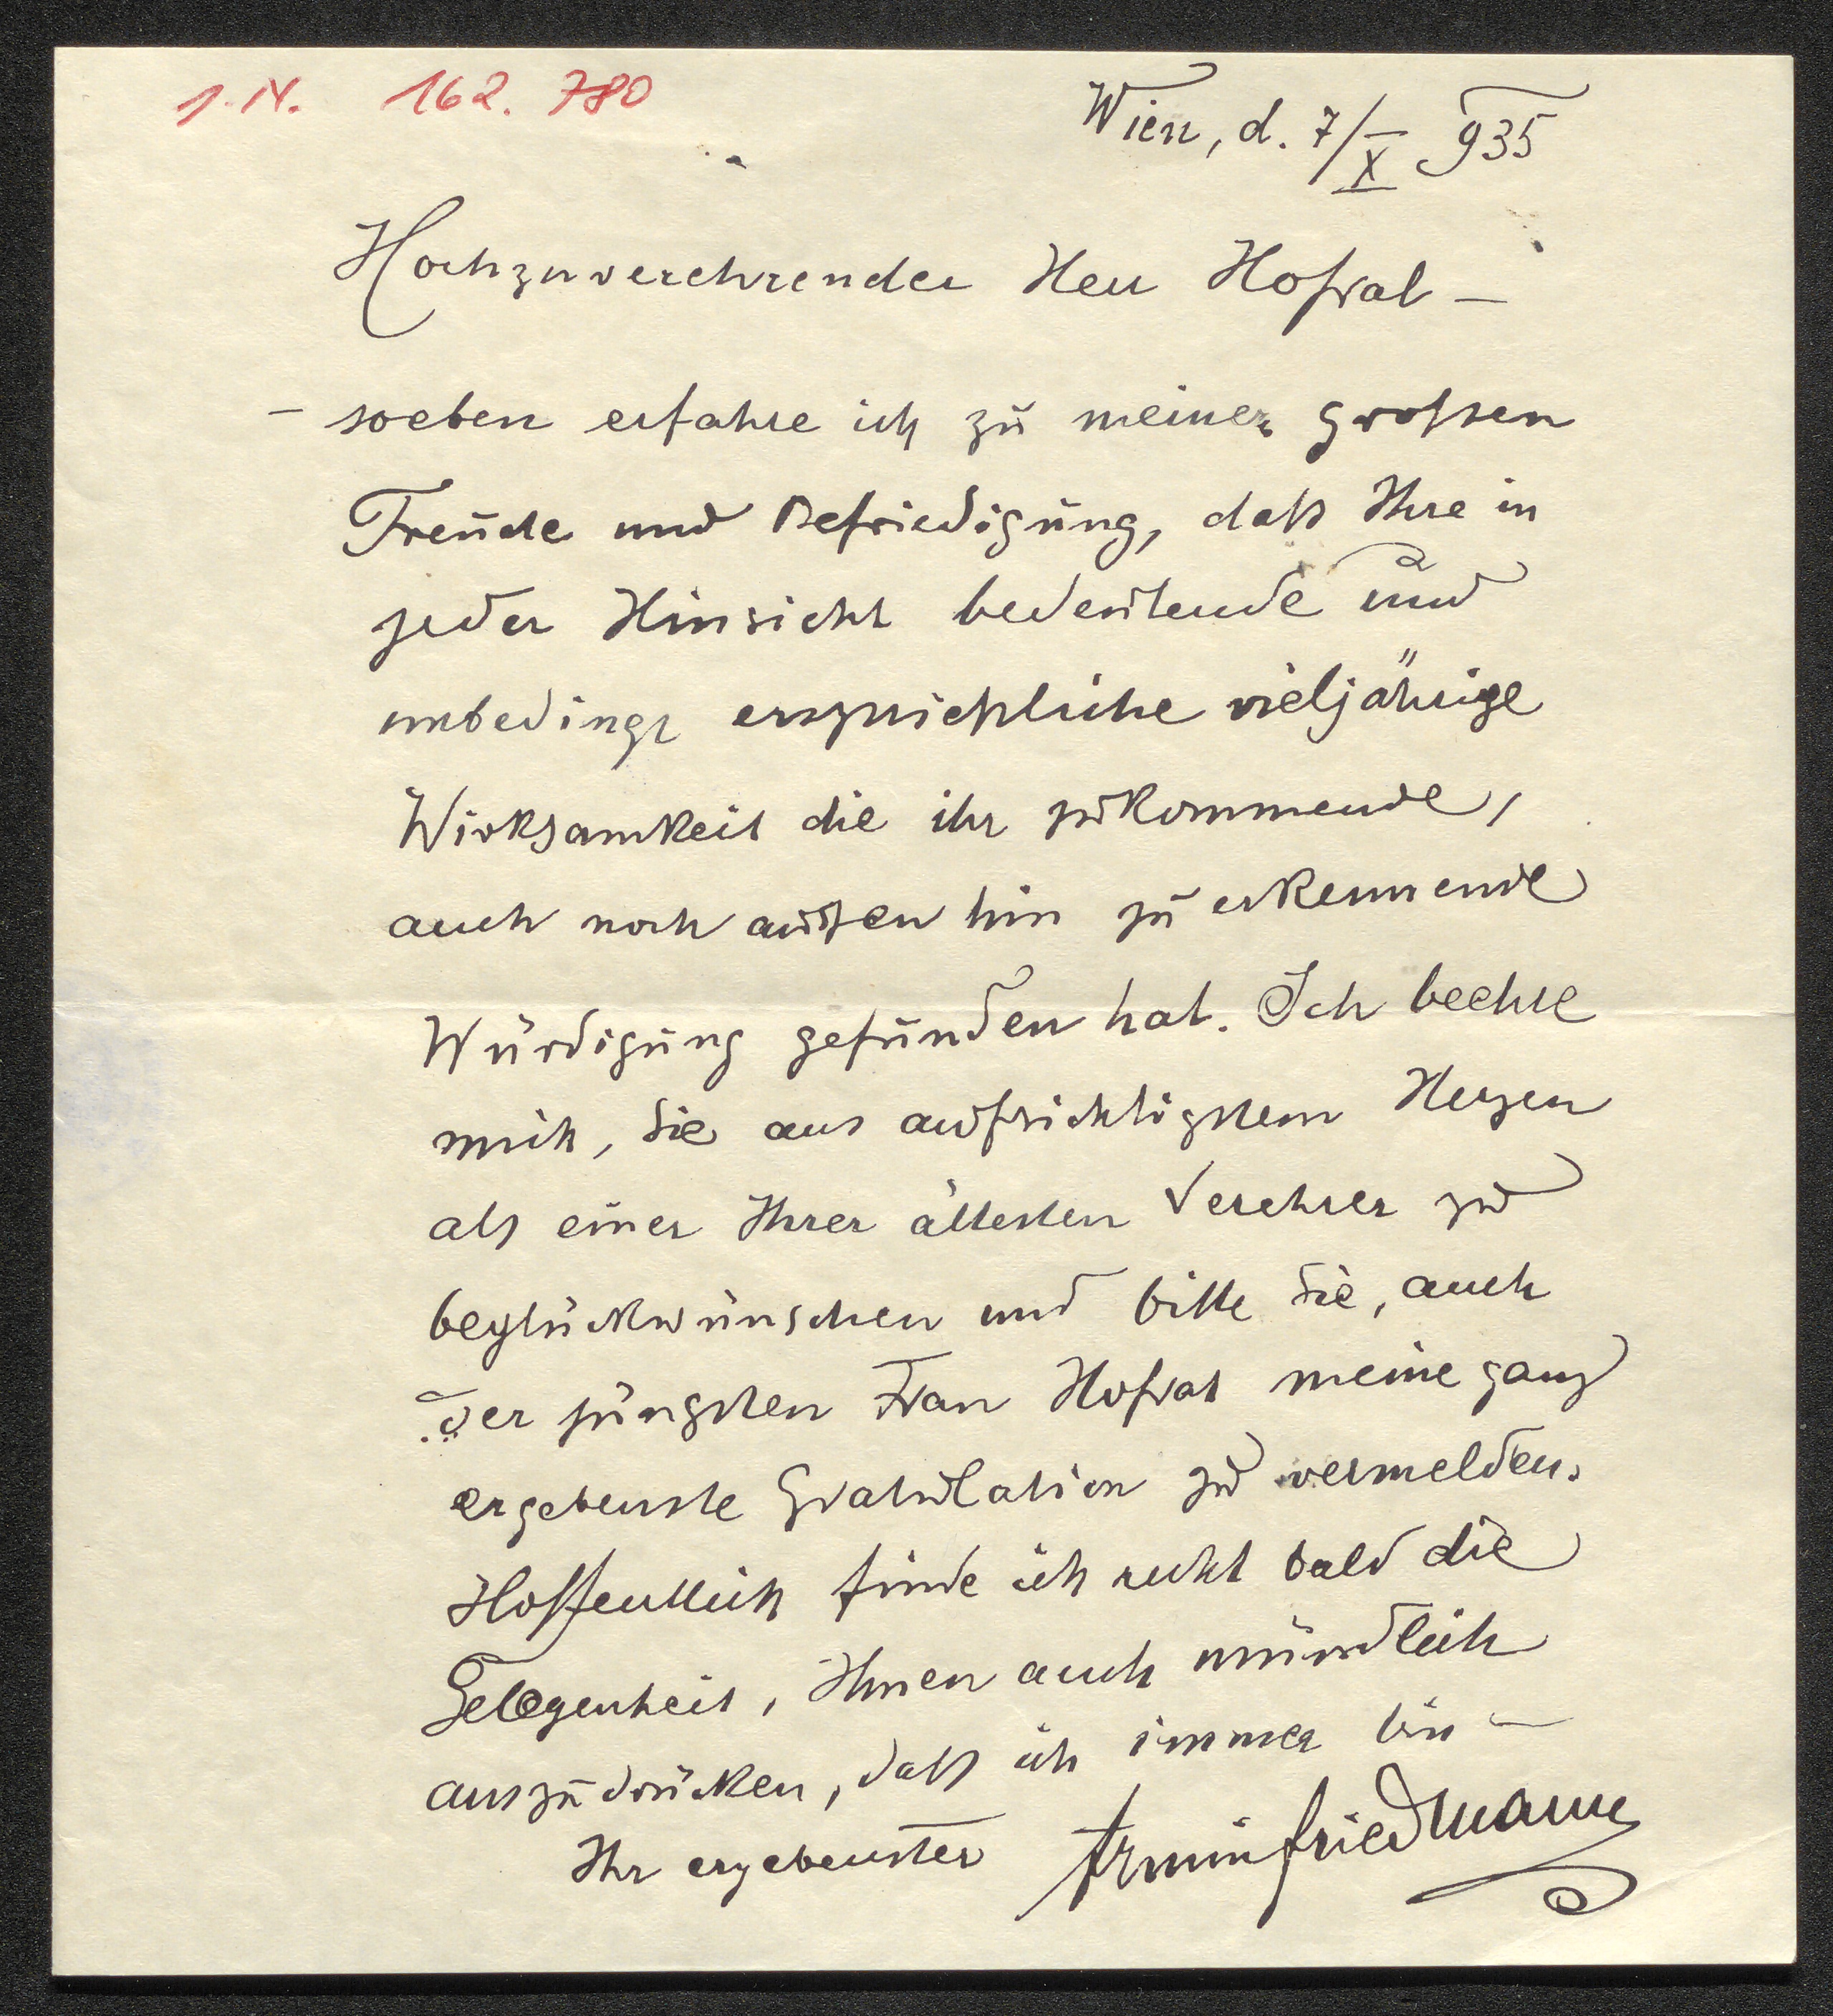 J. N. 162.780
Wien, d. 7/X 935
Hochzuverehrender Herr Hofrat –
– soeben erfahre ich zu meiner grossen
Freude und Befriedigung, daß Ihre in
jeder Hinsicht bedeutende und
unbedingt erspriessliche vieljährige
Wirksamkeit die ihr zukommende,
auch nach außen hin zu erkennende
Würdigung gefunden hat. Ich beehre
mich, Sie aus aufrichtigstem Herzen
als einer Ihrer ältesten Verehrer zu
beglückwünschen und bitte Sie, auch
der jüngsten Frau Hofrat meine ganz
ergebenste Gratulation zu vermelden.
Hoffentlich finde ich recht bald die
Gelegenheit, Ihnen auch mündlich
auszudrücken, daß ich immer bin –
Ihr ergebenster Armin Friedmann